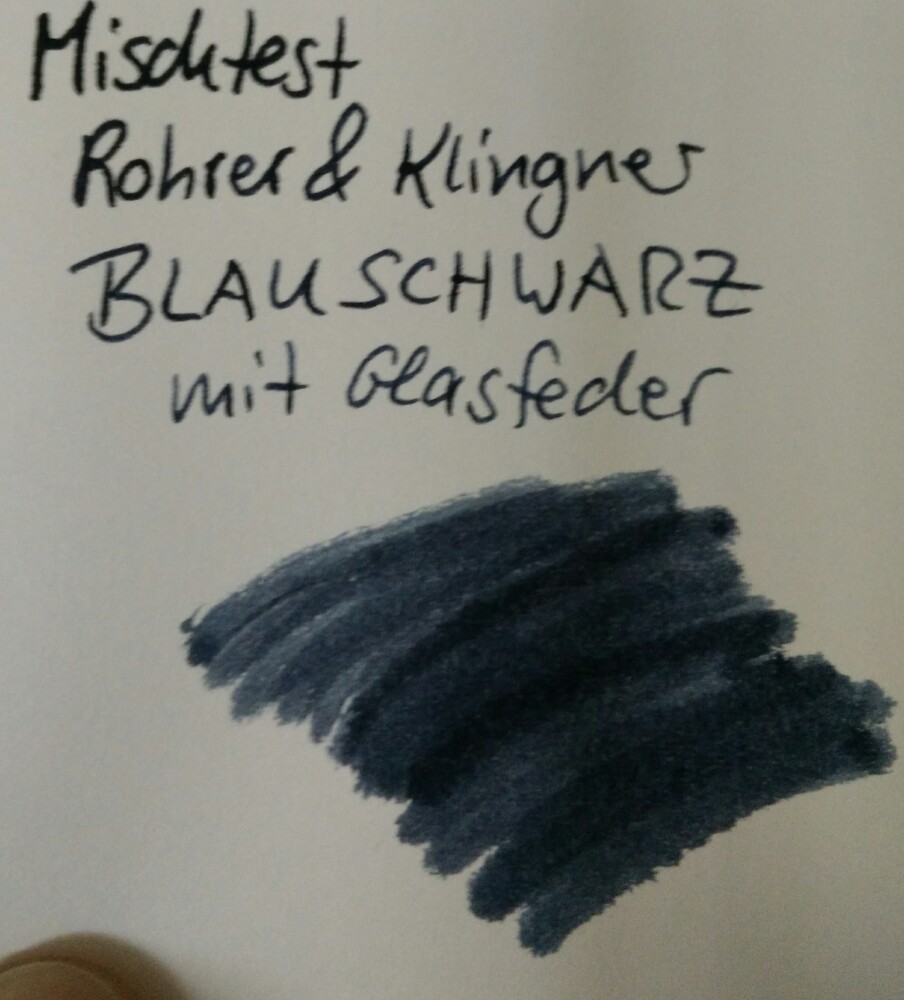 Mischtest
Rohrer & Klingner
BLAUSCHWARZ
mit Glasfeder